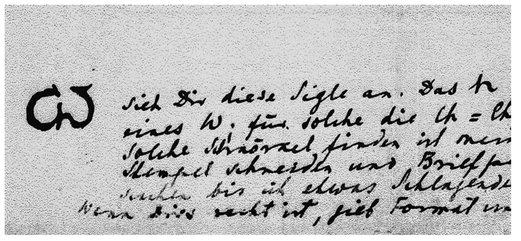 Sieh Dir diese Sigle an. Das
eines W; für solche die Ch = Ch
solche Schnörkel finden ist mein
Stempel schneiden und
suchen bis ich etwas Schlagende
Wenn Dies recht ist, gieb Format